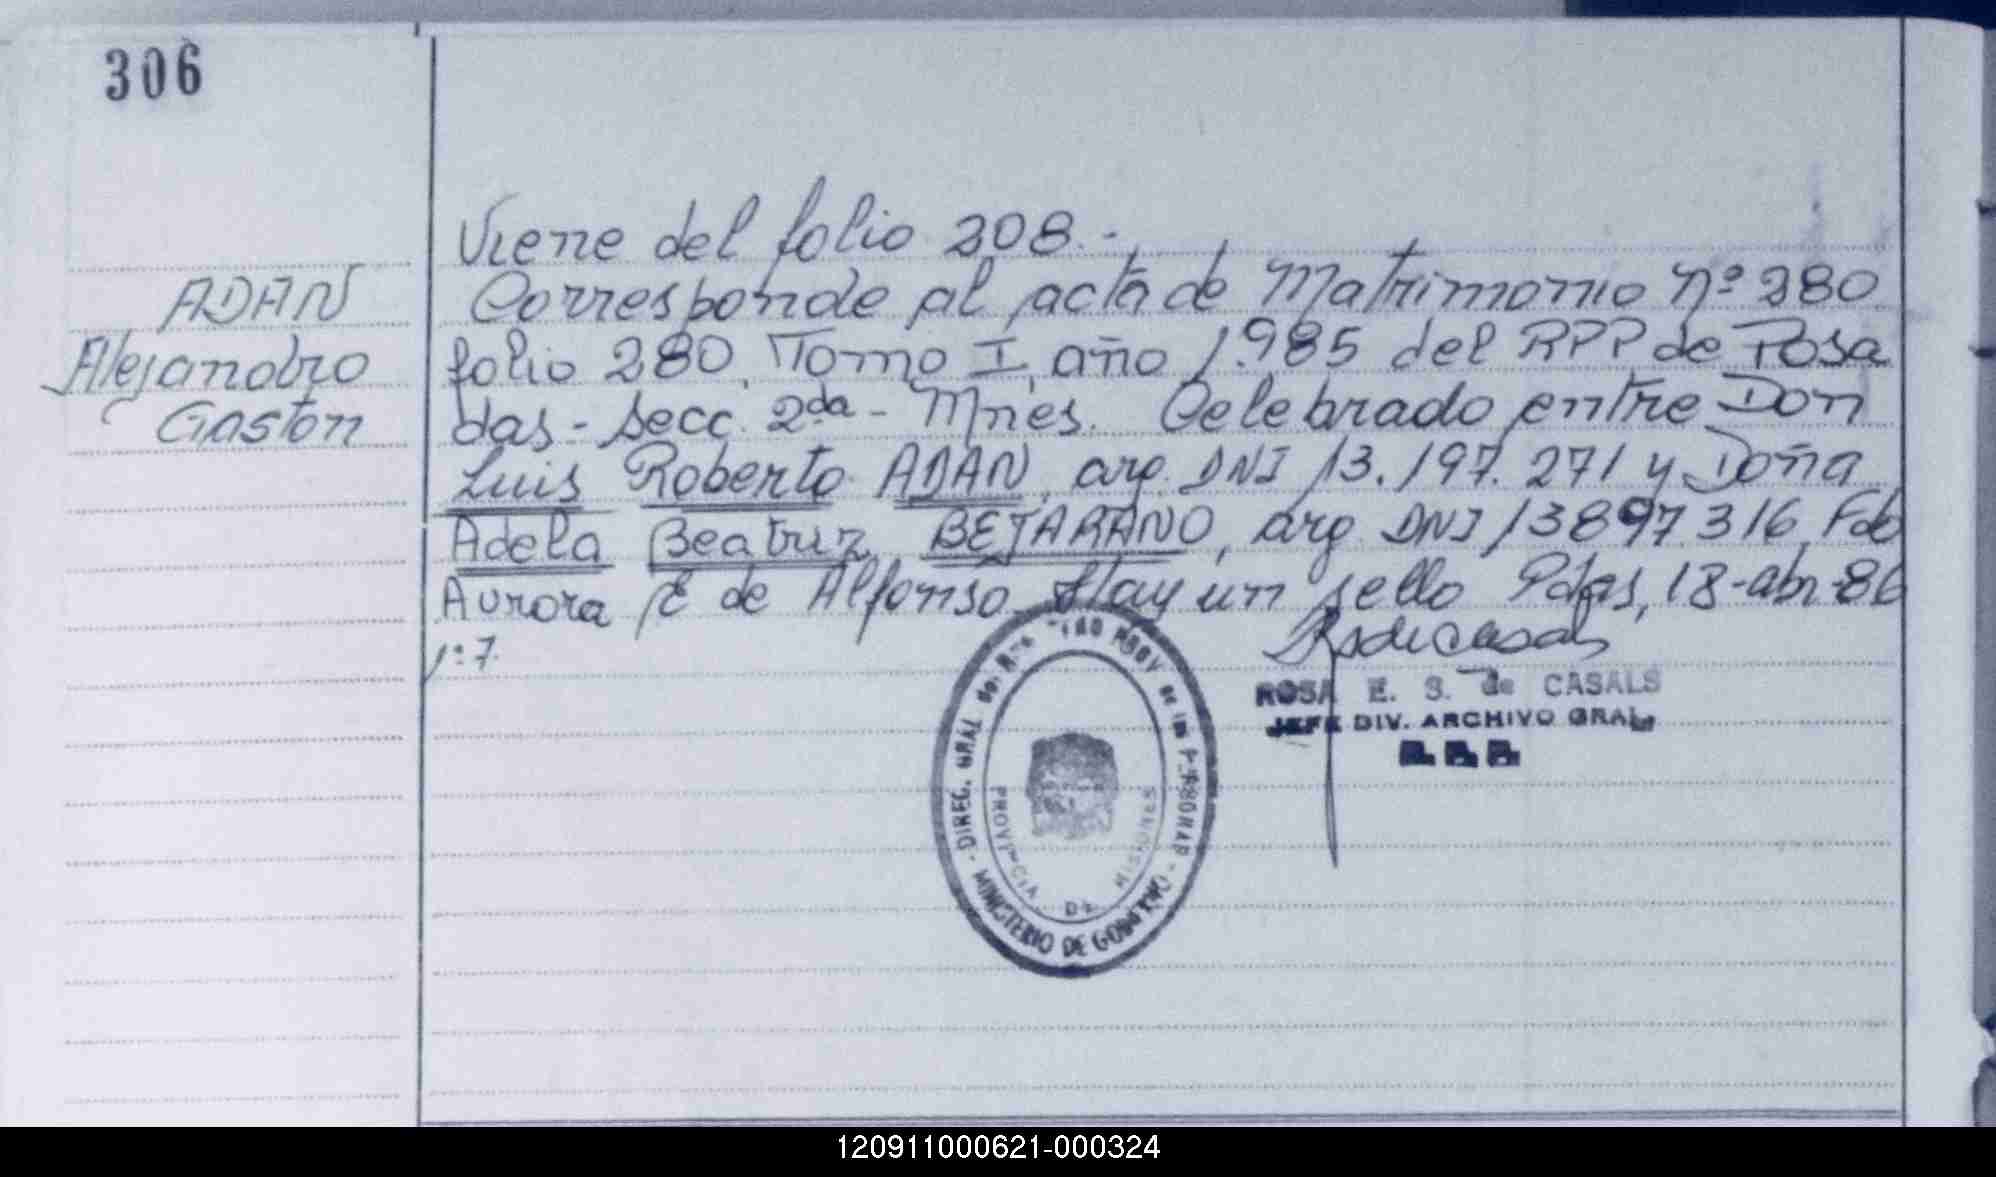 306
Viene del folio 208.-
ADAN
Alejandro
Gaston
Corresponde al acta de Matrimonio Nº 280
folio 280, Tomo I, año 1.985 del RPP de Posa
das - Secc. 2da - Mnes. Celebrado entre Don
Luis Roberto ADAN, arg. DNI 13.197.271 y Doña
Adela Beatriz BEJARANO, arg. DNI 13897316, Fdo
Aurora E de Alfonso. Hay un sello Pdas, 18-abr-86
ROSA E. S. de CASALS
JEFE DIV. ARCHIVO GRAL.
DIREC. GRAL del
de las
MINISTERIO DE GOBIERNO
PROVINCIA DE MISIONES
120911000621-000324